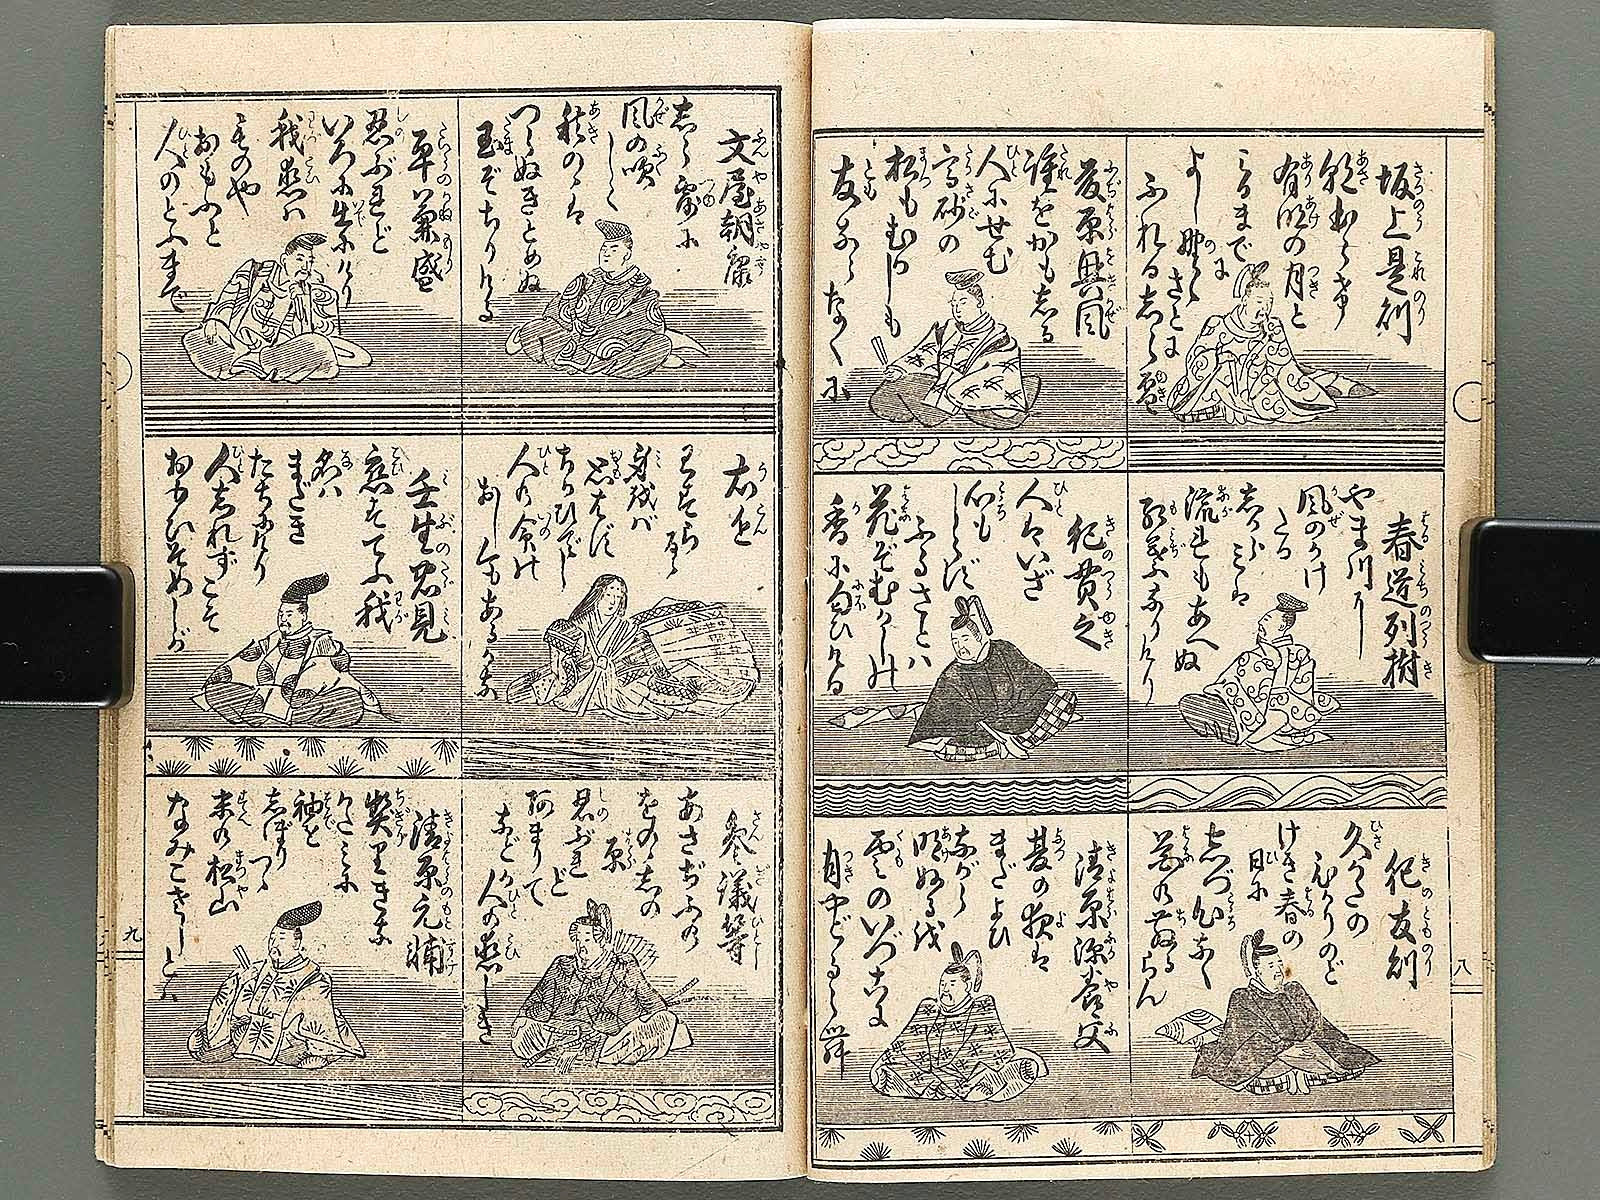 坂上是則
朝ぼらけ
有明の月と
みるまで
に
よし野ゝさとに
ふれるしら雪
春道列樹
やま川に
風のかけ
たる
しがらみは
流れもあへぬ
紅葉なりけり
紀友則
久かたの
ひかりのど
けき春の
日に
しづ心なく
花の散るらん
藤原興風
誰をかも
しる
人にせむ
高砂の
松もむかしも
友ならなくに
紀貫之
人はいざ
心も
しらず
ふるさとハ
花ぞむかしの
香に匂ひける
清原深養父
夏の夜は
まだよひ
ながら
明ぬるを
雲のいづこに
月やどるらむ
文屋朝康
しら露に
風の吹
しく
秋のゝは
つらぬきとめぬ
玉ぞちりける
右近
わすらるゝ
身をば
思はず
ちかひてし
人の命の
おしくもあるかな
参議等
あさぢふの
をのゝしの
原
忍ぶれど
あまりて
などか人の恋しき
平兼盛
忍ぶれど
いろに出にけり
我恋ハ
ものや
おもふと
人のとふまで
壬生忠見
恋すてふ我
名ハ
まだき
たちにけり
人しれずこそ
おもひそめしが
清原元輔
契りきな
かたみに
袖を
しぼりつゝ
末の松山
なみこさじとは
八
九